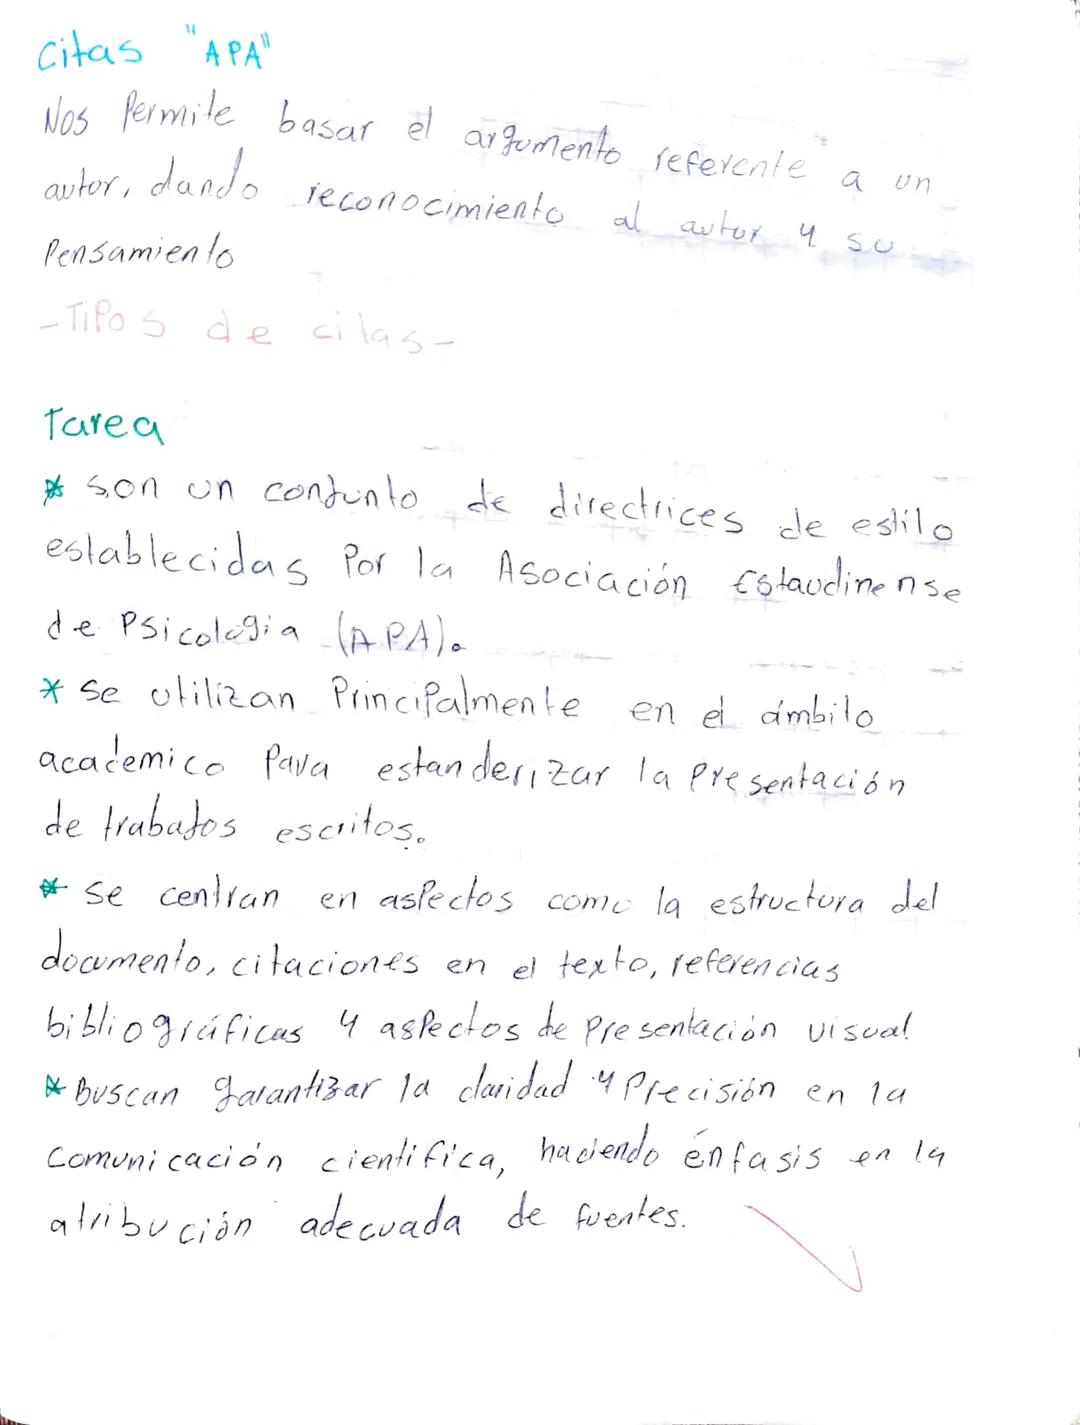 Citas "APA"
Nos Permite basar el argumento referente a un
autor, dando reconocimiento al autor y su
Pensamiento
-Tipos de citas-
Tarea
* son un conjunto de directrices de estilo
establecidas Por la Asociación Estaudinense
de Psicologia (APA).
* se utilizan Principalmente en el ámbito
academico Para estanderizar la Presentación
de trabajos escritos.
* se centran en aspectos como la estructura del
documento, citaciones en el texto, referencias
bibliográficas y aspectos de Presentación visual.
* Buscan garantizar la claridad y Precisión en la
comunicación cientifica, haciendo énfasis en la
atribución adecuada de fuentes.